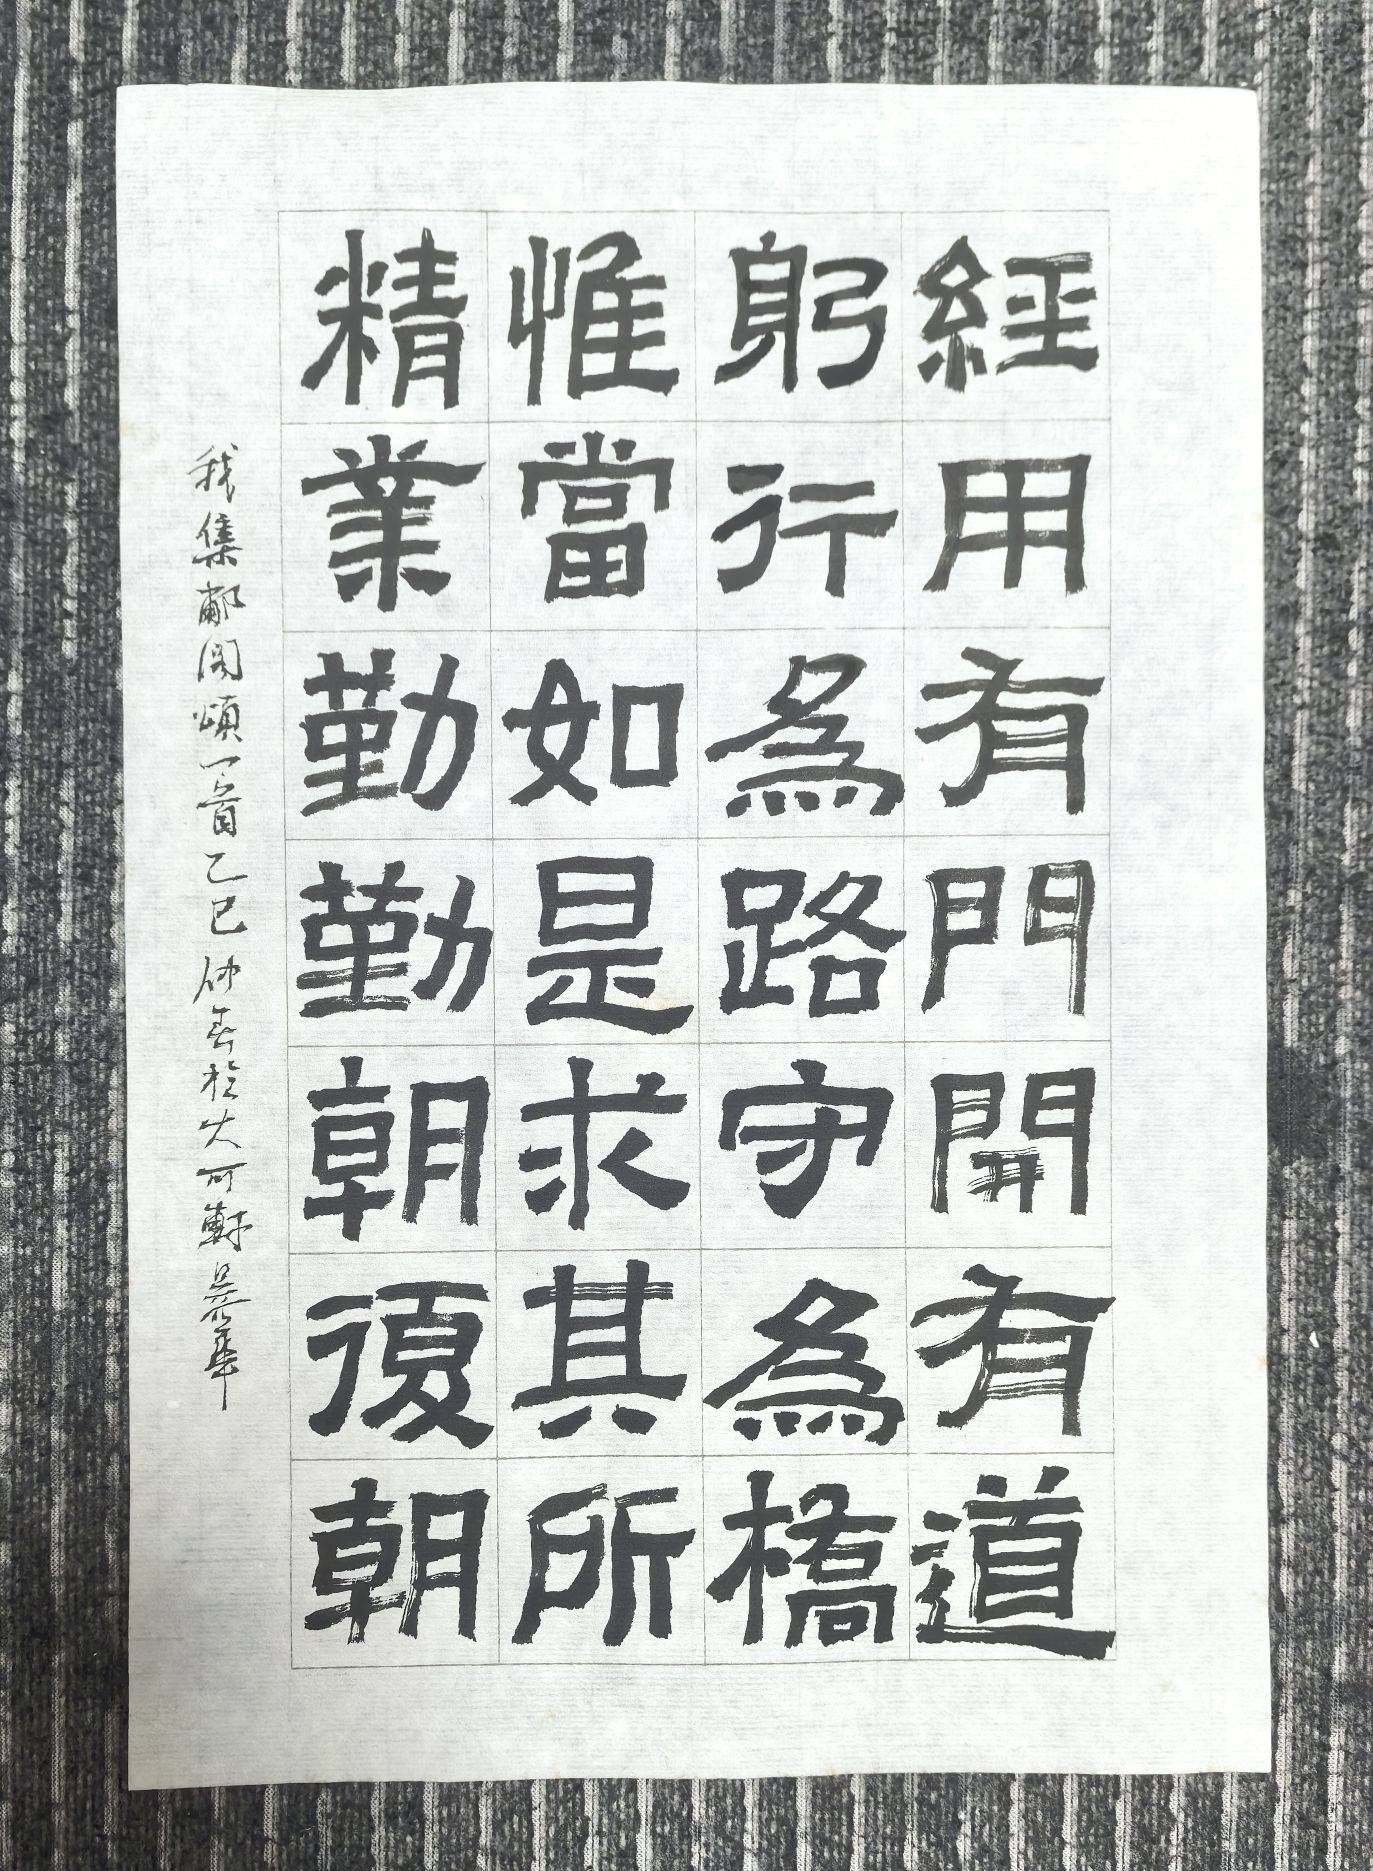 經用有門開有道
躬行為路守為橋
惟當如是求其所
精業勤勤朝復朝
我集郙閣頌一首乙巳仲春於大可軒晨華